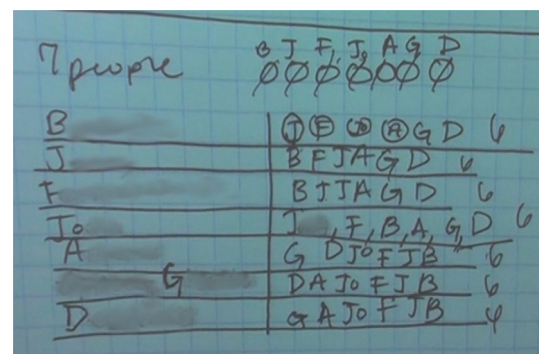 B J F, Jo A G D
7 people Ø Ø Ø Ø Ø Ø Ø
B J F Jo A G D 6
J B F J A G D 6
F B J J A G D 6
Jo J , F, B, A, G, D 6
A G D Jo F J B 6
G D A Jo F J B 6
D G A Jo F J B 6